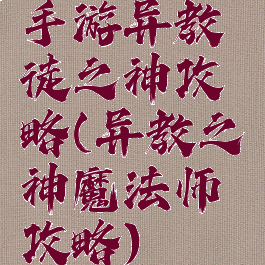 手游异教
徒之神攻
略(异教之
神魔法师
攻略)